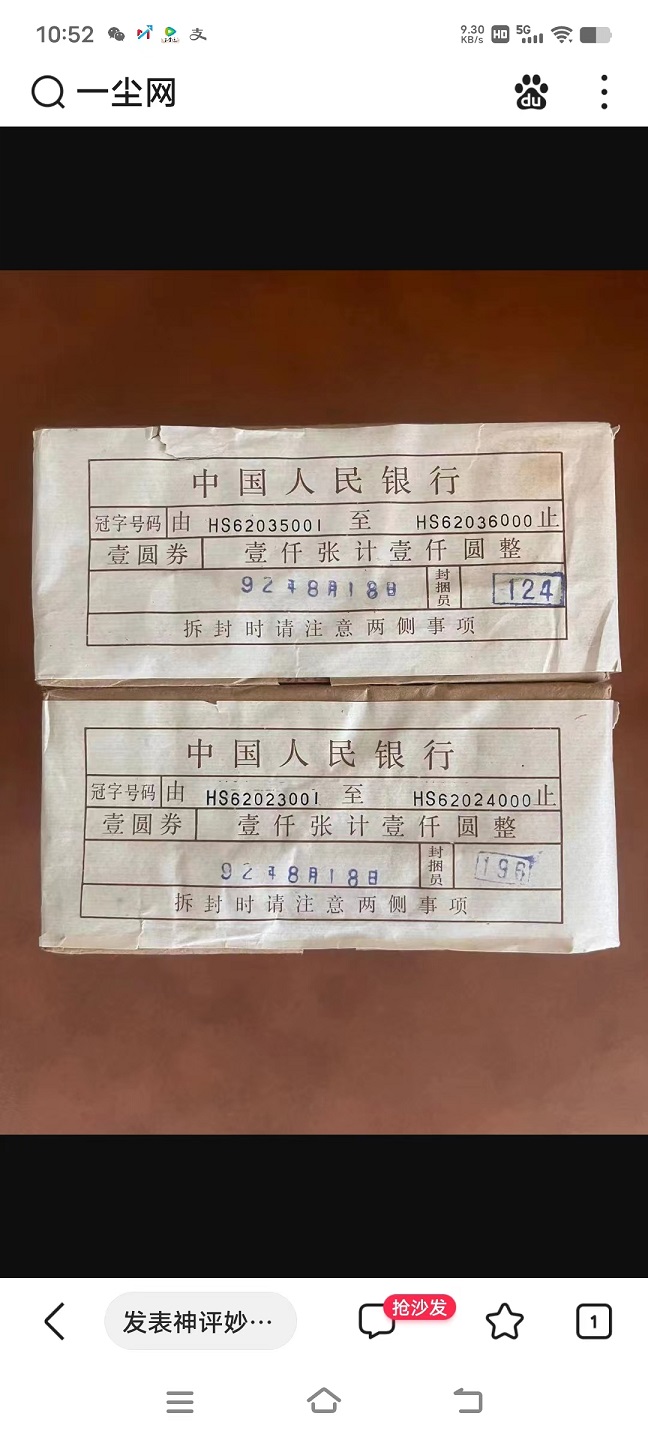 10:52
9.30 KB/s HD 5G
一尘网
du
中国人民银行
冠字号码 由 HS62035001 至 HS62036000 止
壹圆券 壹仟张计壹仟圆整
92年8月18日 封捆员 124
拆封时请注意两侧事项
中国人民银行
冠字号码 由 HS62023001 至 HS62024000 止
壹圆券 壹仟张计壹仟圆整
92年8月18日 封捆员 196
拆封时请注意两侧事项
发表神评妙…
抢沙发
1